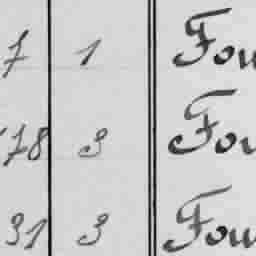 7 1 Fou
78 3 Fou
31 3 Fou